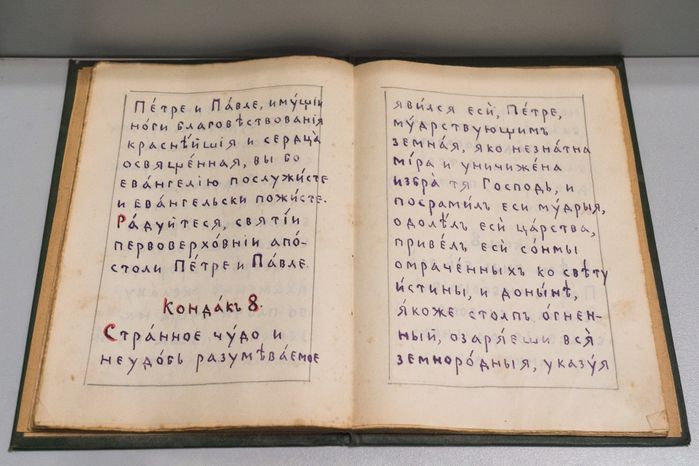 Пе́тре и Па́вле, иму́щіи
но́ги благовѣствованія
краснѣ́йшія и сердца̀
освяще́нная, вы бо
ева́нгелію послужи́сте
и ева́нгельски пожи́сте.
Ра́дуйтеся, святі́и
первоверхо́вніи апо́-
столи Пе́тре и Па́вле.
Конда́къ 8.
Стра́нное чу́до и
неудо́бь разумѣва́емое
яви́лся есѝ, Пе́тре,
му́дрствующимъ
земна́я, яко незна́тна
мі́ра и уничиже́на
избра̀ тя Госпо́дь, и
посрами́лъ еси му́дрыя,
одолѣ́лъ есѝ ца́рства,
приве́лъ есѝ со́нмы
омраче́нныхъ ко свѣ́ту
и́стины, и доны́нѣ,
я́коже столпъ о́гнен-
ный, озаря́еши вся̀
земноро́дныя, указу́я